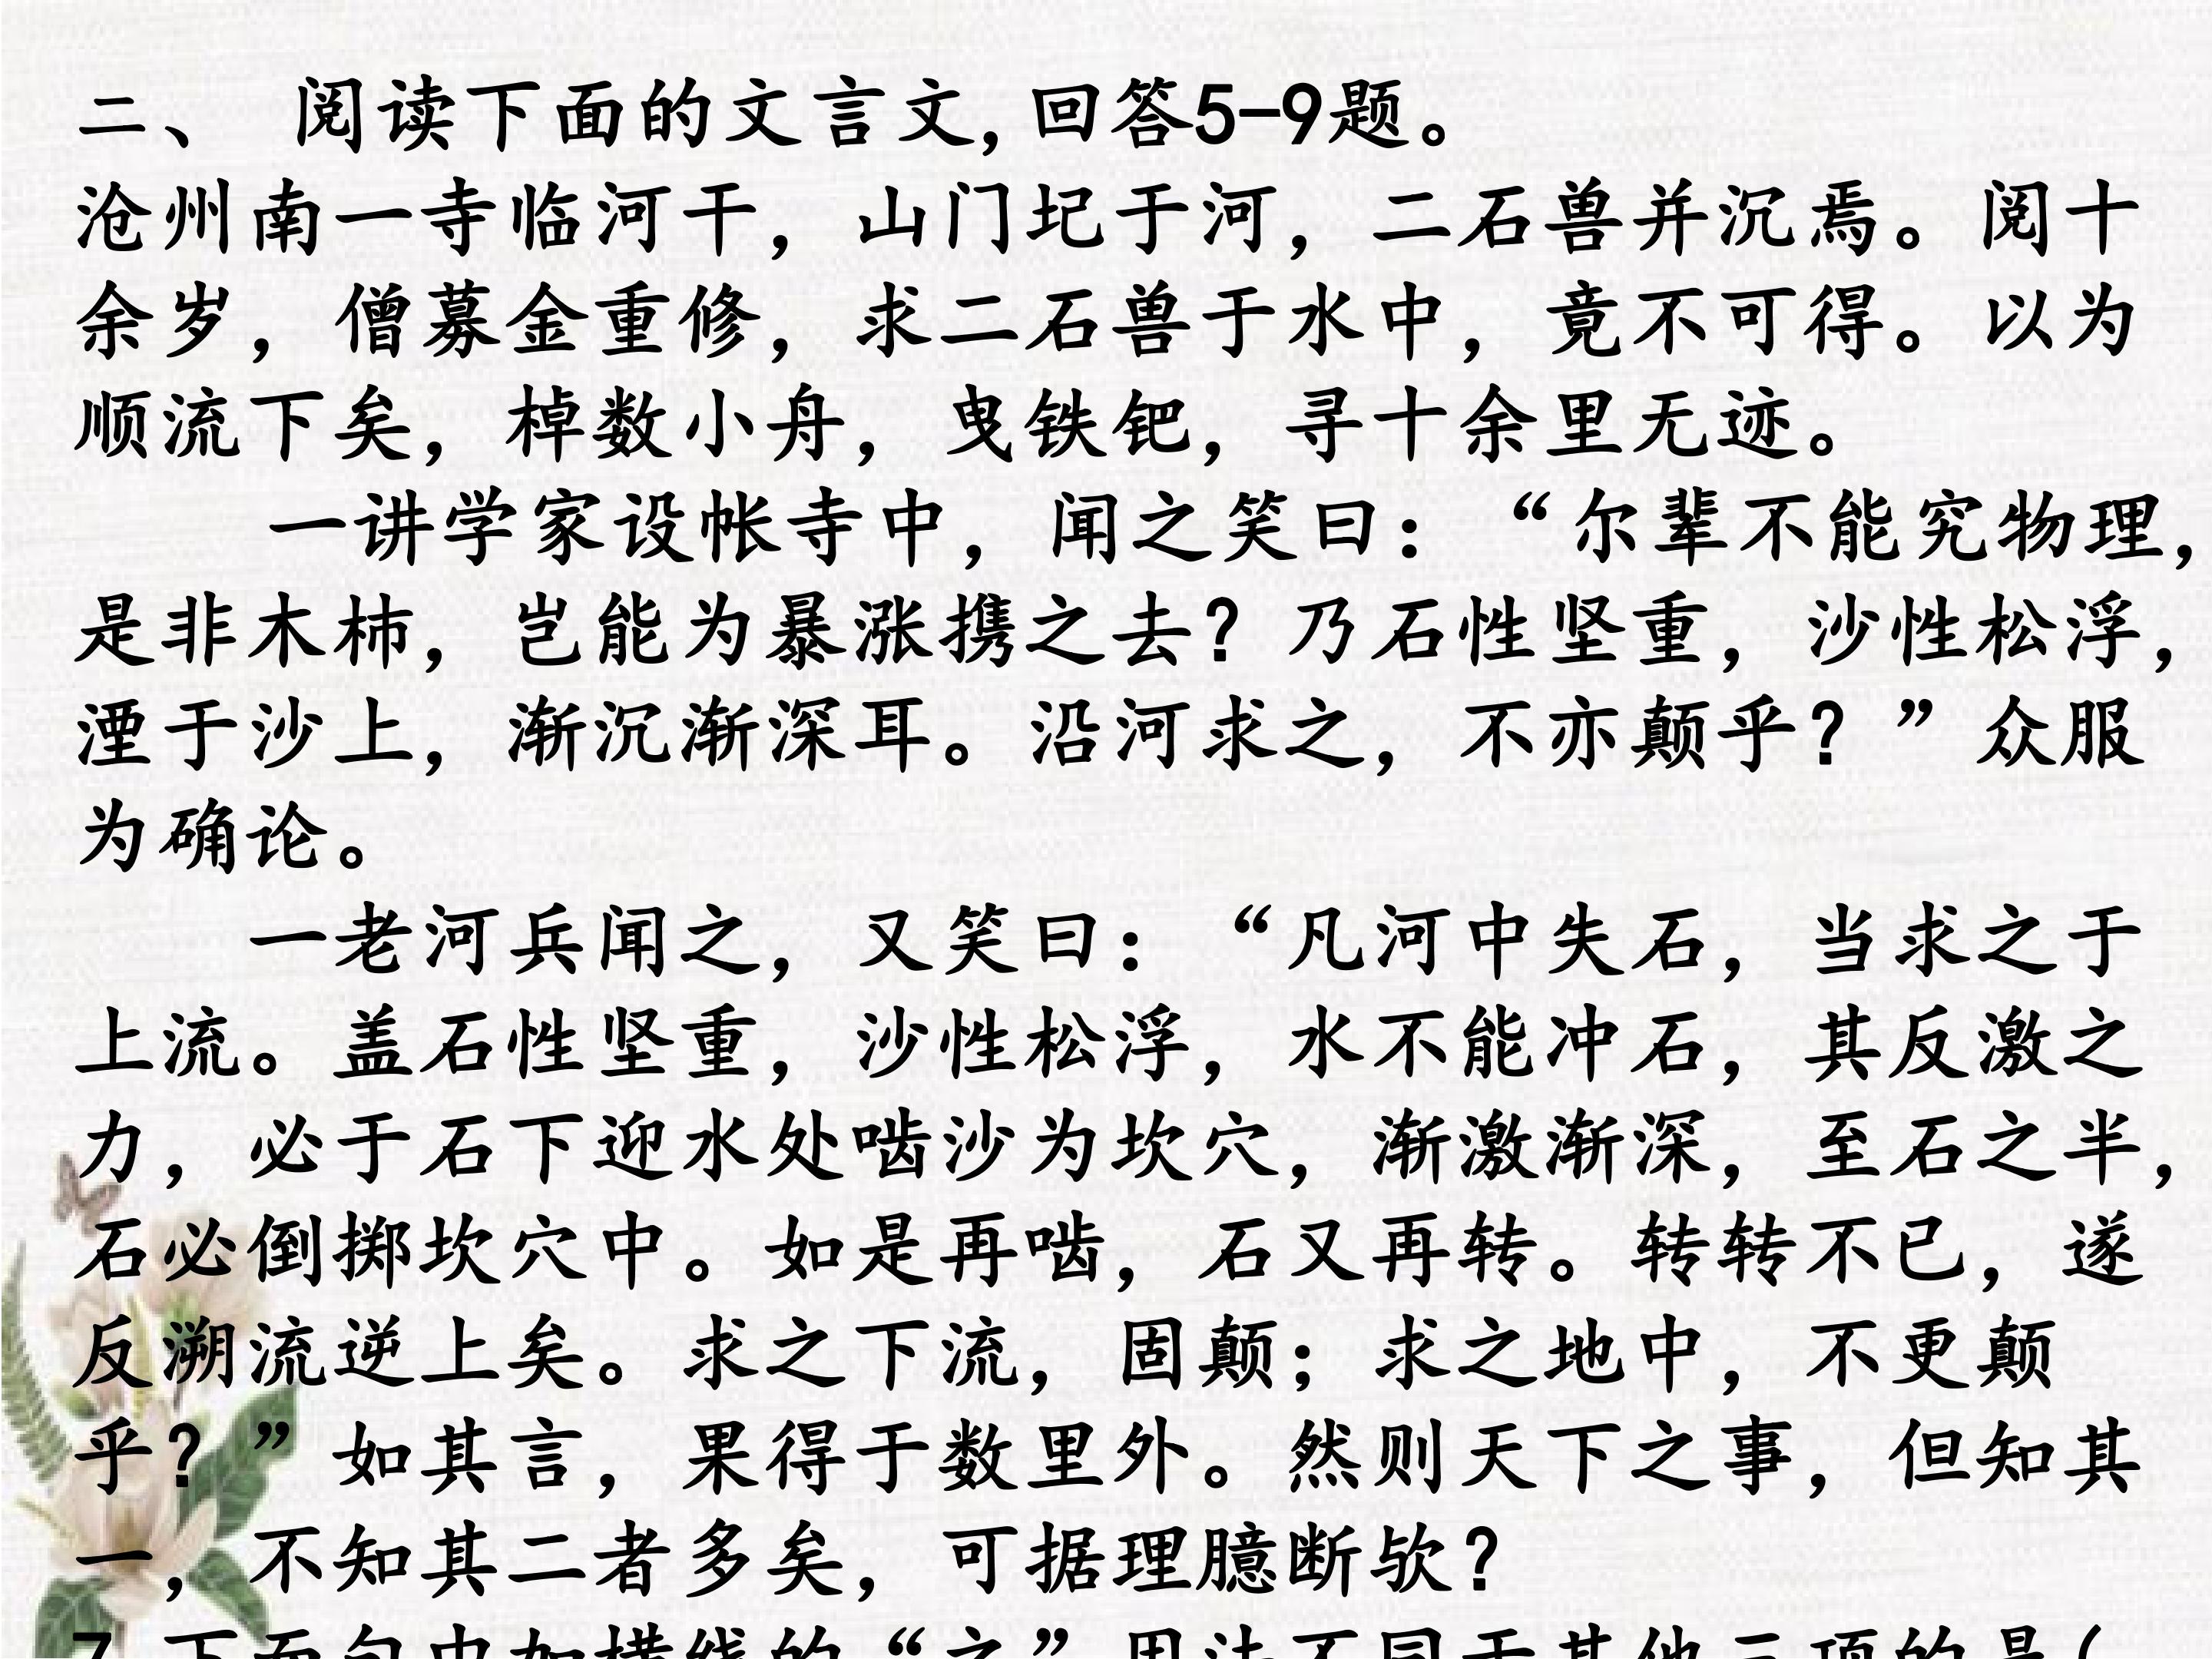 二、 阅读下面的文言文,回答5-9题。
沧州南一寺临河干，山门圮于河，二石兽并沉焉。阅十
余岁，僧募金重修，求二石兽于水中，竟不可得。以为
顺流下矣，棹数小舟，曳铁钯，寻十余里无迹。
一讲学家设帐寺中，闻之笑曰：“尔辈不能究物理，
是非木杮，岂能为暴涨携之去？乃石性坚重，沙性松浮，
湮于沙上，渐沉渐深耳。沿河求之，不亦颠乎？”众服
为确论。
一老河兵闻之，又笑曰：“凡河中失石，当求之于
上流。盖石性坚重，沙性松浮，水不能冲石，其反激之
力，必于石下迎水处啮沙为坎穴，渐激渐深，至石之半，
石必倒掷坎穴中。如是再啮，石又再转。转转不已，遂
反溯流逆上矣。求之下流，固颠；求之地中，不更颠
乎？”如其言，果得于数里外。然则天下之事，但知其
一，不知其二者多矣，可据理臆断欤？
7.下面句中加横线的“之”用法不同于其他三项的是(